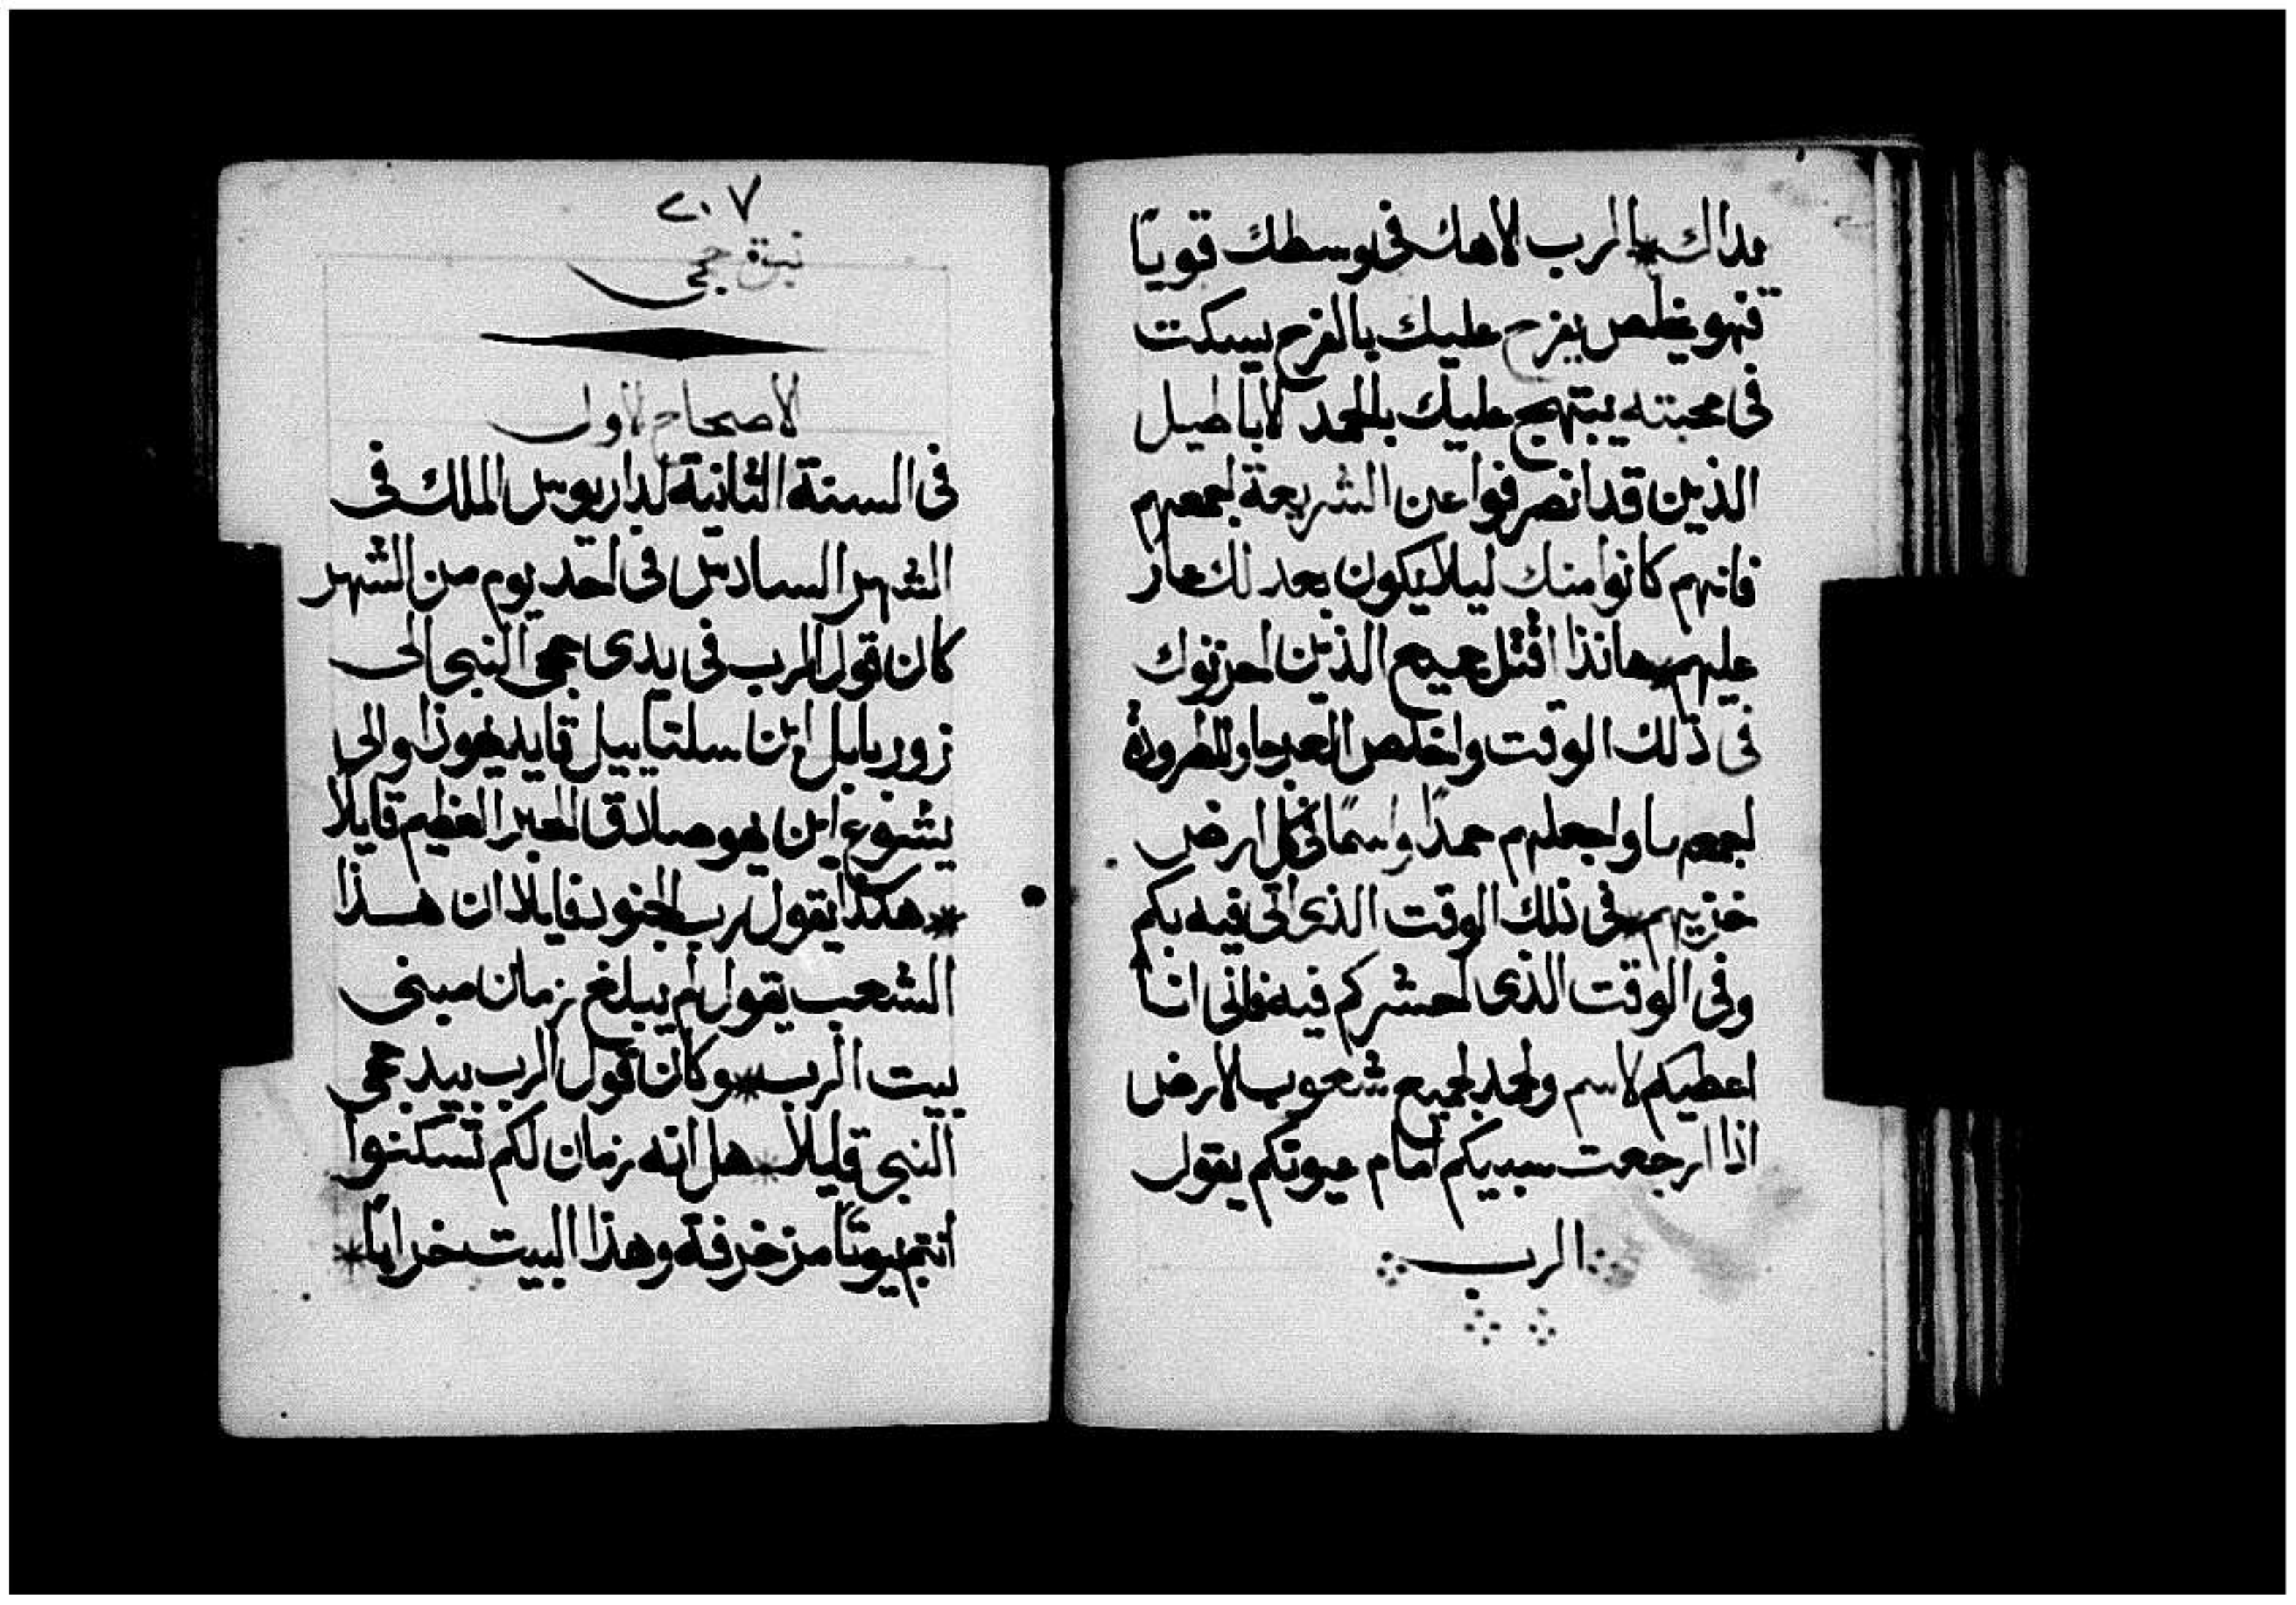 يداك * الرب الاهك فى وسطك قويًا
فهو يخلص يفرح عليك بالفرح يسكت
فى محبته يبتهج عليك بالحمد الاباطيل
الذين قد انصرفوا عن الشريعة اجمعهم
فانهم كانوا منك ليلا يكون بعد لك عار
عليهم * هانذا اقتل جميع الذين احزنوك
فى ذلك الوقت واخلص العرجا والمطرودة
اجمعها واجعلهم حمدًا واسمًا فى كل ارض
خزيهم * فى ذلك الوقت الذى اتى فيه بكم
وفى الوقت الذى احشركم فيه فانى انا
اعطيكم لاسم ولحمد لجميع شعوب الارض
اذا ارجعت سبيكم امام عيونكم يقول
الرب
٢٠٧
نبوة حجى
الاصحاح الاول
فى السنة الثانية لداريوس الملك فى
الشهر السادس فى احد يوم من الشهر
كان قول الرب فى يدى حجى النبى الى
زوربابل ابن سلتاييل قايد يهوذا والى
يشوع ابن يهوصادق الحبر العظيم قايلا
* هكذا يقول رب الجنود قايلا ان هذا
الشعب يقول لم يبلغ زمان مبنى
بيت الرب * وكان قول الرب بيد حجى
النبى قايلا * هل انه زمان لكم تسكنوا
انتم بيوتًا مزخرفة وهذا البيت خرابًا *